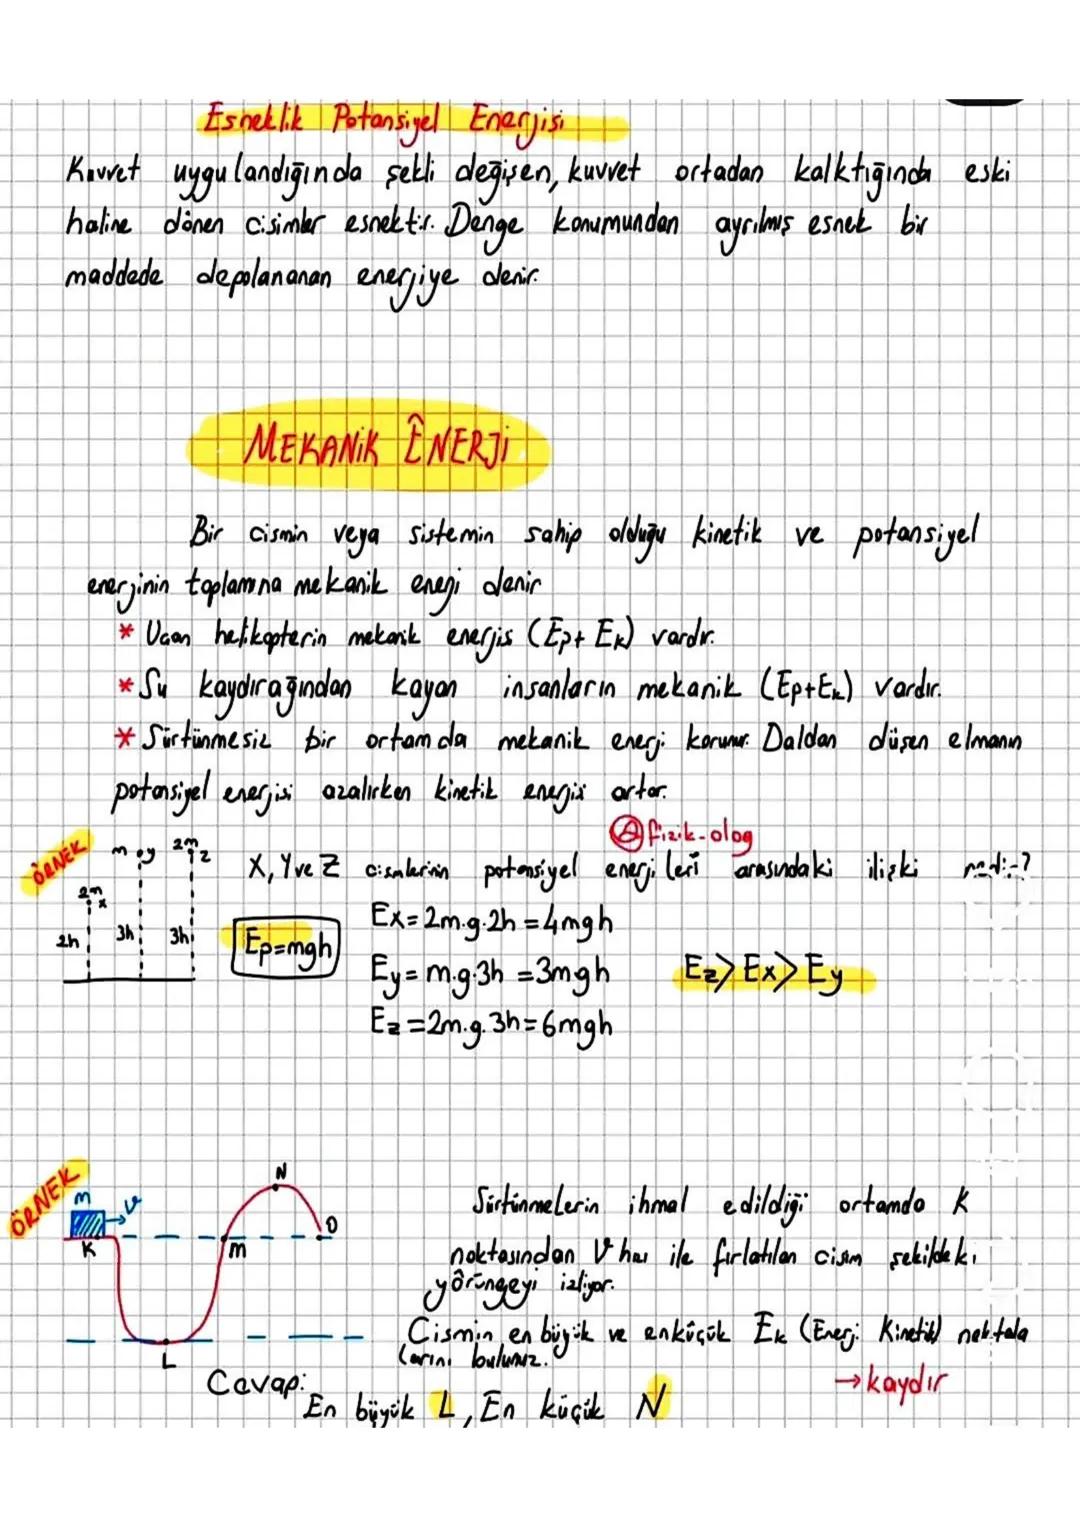 Esneklik Potansiyel Enerjisi
Kuvvet uygulandığında şekli değişen, kuvvet ortadan kalktığında eski
haline dönen cisimler esnektir. Denge konumundan ayrılmış esnek bir
maddede depolananan enerjiye denir.
MEKANİK ENERJİ
Bir cismin veya sistemin sahip olduğu kinetik ve potansiyel
enerjinin toplamına mekanik enerji denir
* Uçan helikopterin mekanik enerjis (Ep+ Ek) vardır.
* Su kaydırağından kayan insanların mekanik (Ep+Ek) vardır.
* Sürtünmesiz bir ortamda mekanik enerji korunur. Daldan düşen elmanın
potansiyel enerjisi azalırken kinetik enerjisi artar.
@fizik-olog
ÖRNEK
m y 2m z
X, Y ve Z cisimlerinin potansiyel enerjileri arasındaki ilişki nedir?
2m x
2h 3h 3h
Ep=mgh
Ex=2m.g.2h=4mgh
Ey=m.g.3h=3mgh
Ez=2m.g.3h=6mgh
Ez>Ex>Ey
ÖRNEK
m v
K L m N O
Sürtünmelerin ihmal edildiği ortamda K
noktasından V hızı ile fırlatılan cisim şekildeki
yörüngeyi izliyor.
Cismin en büyük ve en küçük Ek (Enerji Kinetik) noktala
larını bulunuz.
→kaydır
Cevap:
En büyük L, En küçük N